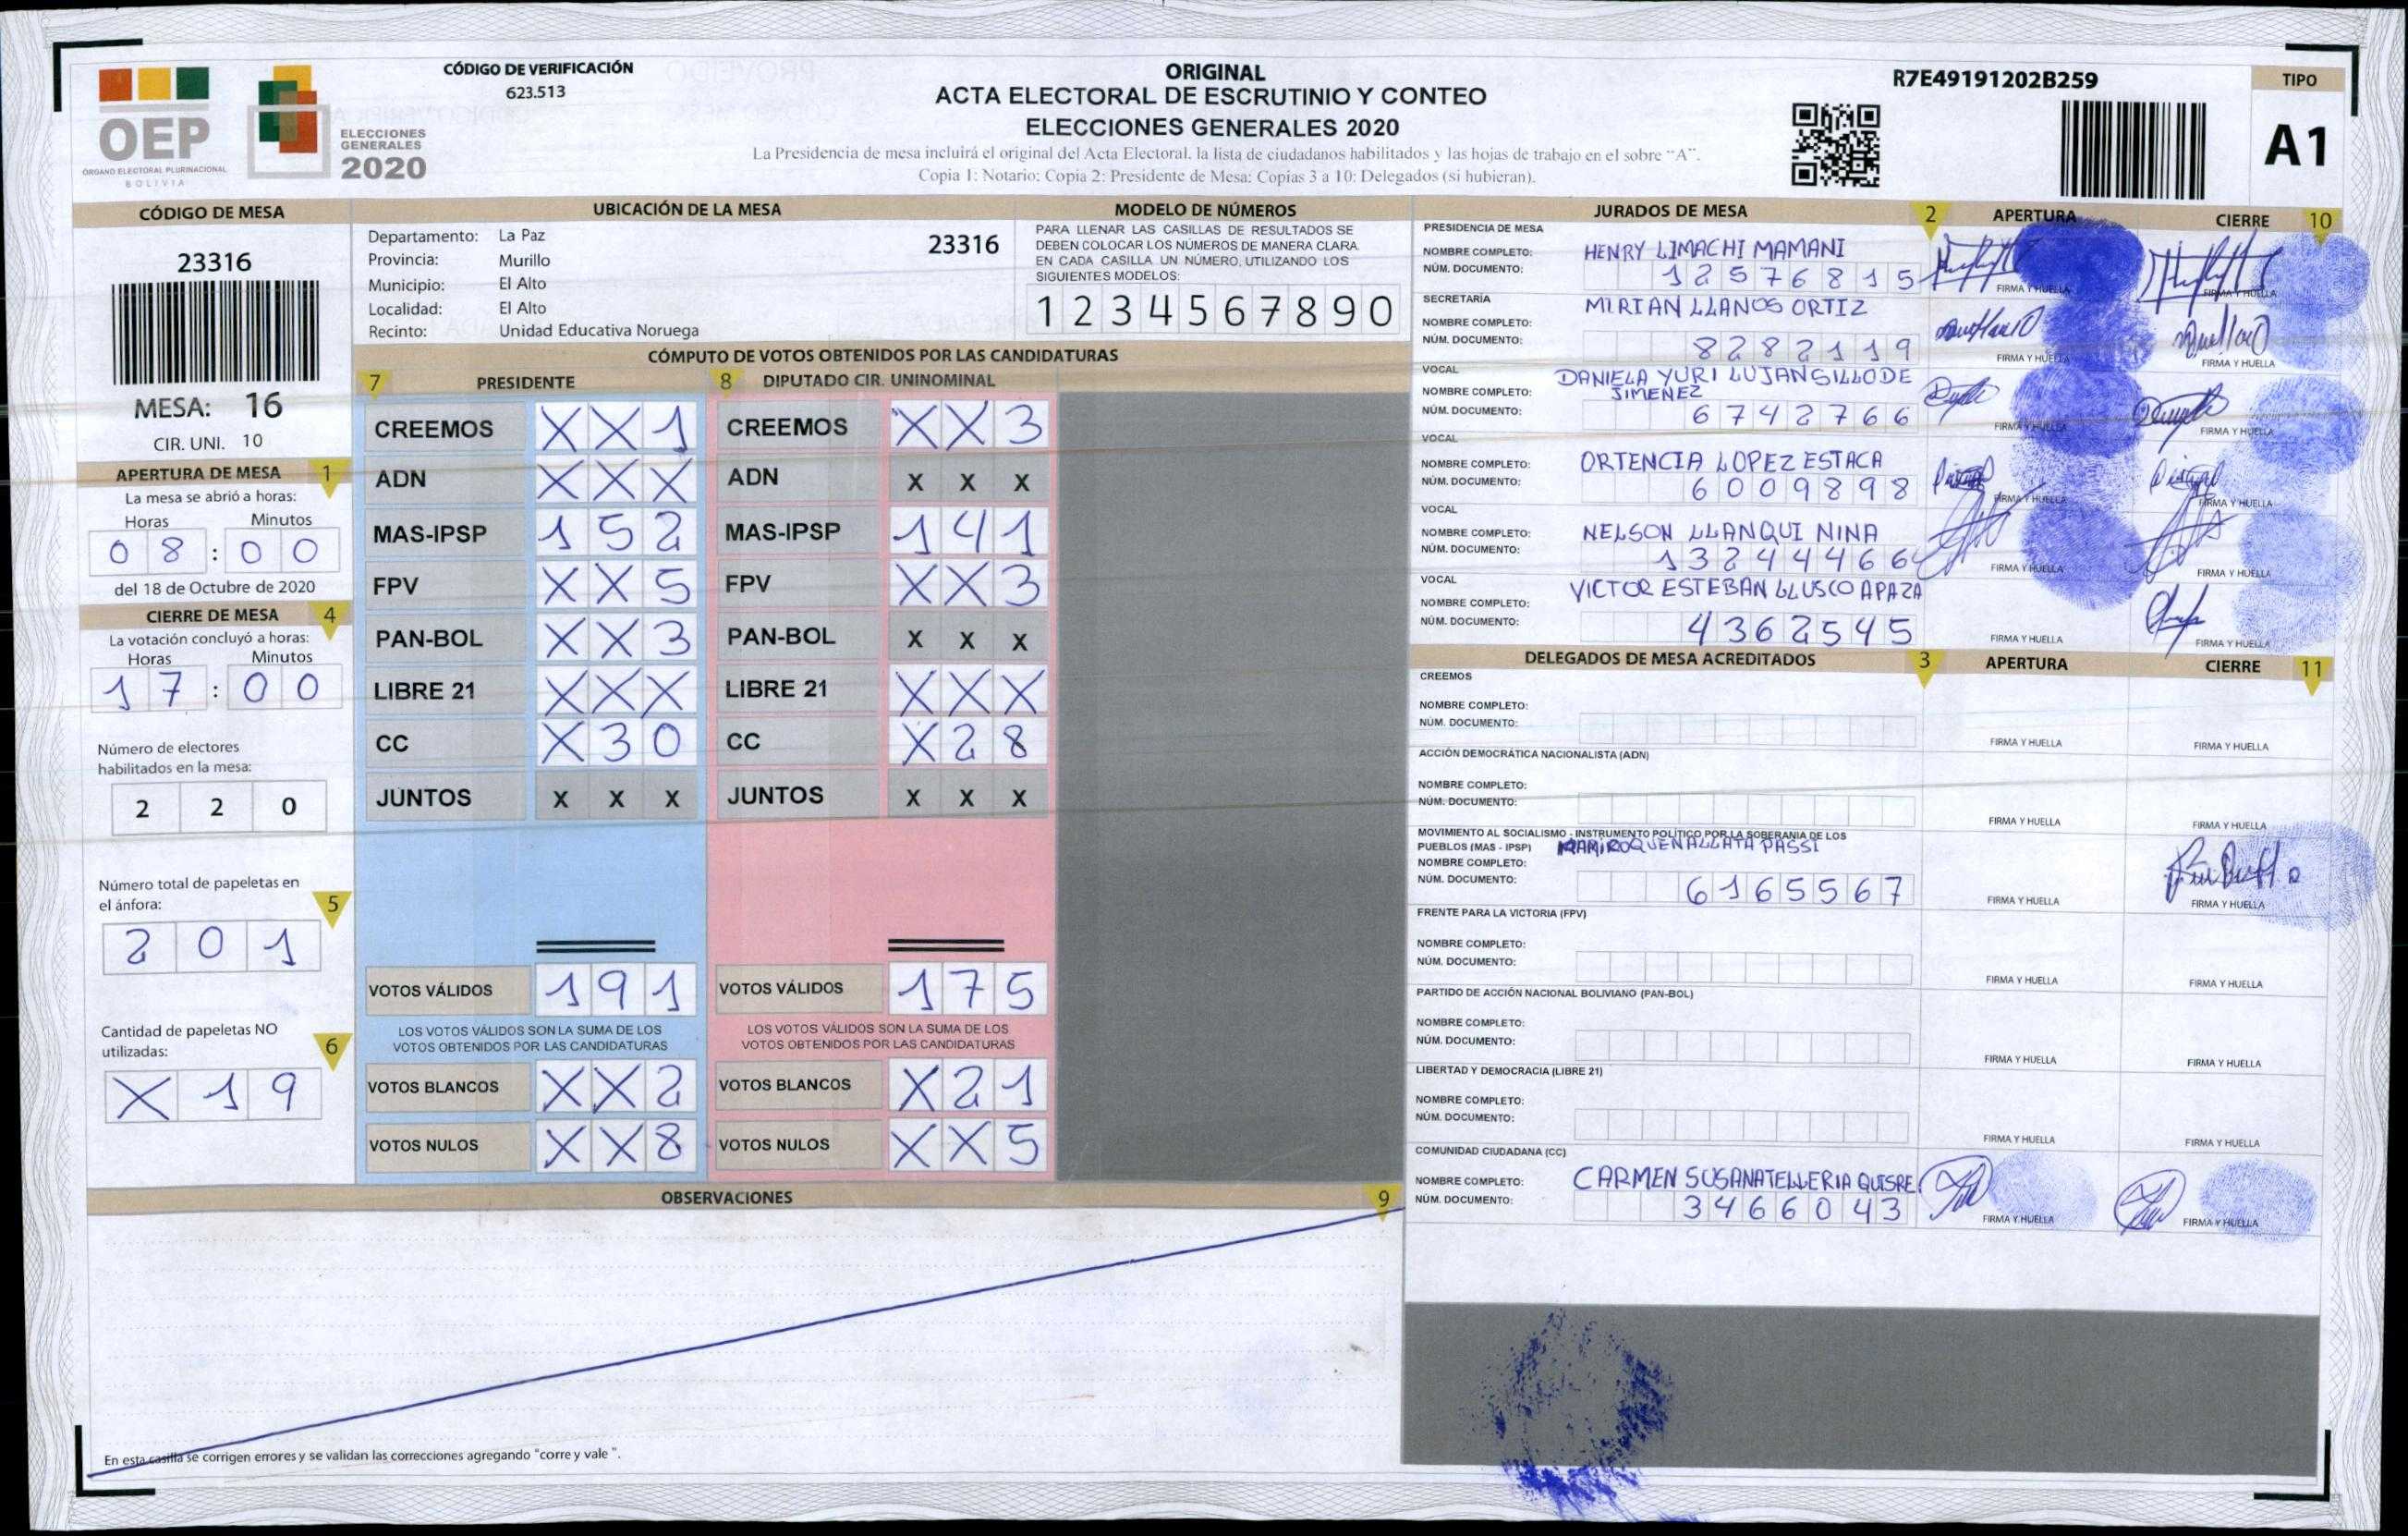 OEP
ÓRGANO ELECTORAL PLURINACIONAL
BOLIVIA
ELECCIONES
GENERALES
2020
CÓDIGO DE VERIFICACIÓN
623.513
ORIGINAL
ACTA ELECTORAL DE ESCRUTINIO Y CONTEO
ELECCIONES GENERALES 2020
La Presidencia de mesa incluirá el original del Acta Electoral, la lista de ciudadanos habilitados y las hojas de trabajo en el sobre "A".
Copia 1: Notario; Copia 2: Presidente de Mesa; Copias 3 a 10: Delegados (si hubieran).
R7E49191202B259
TIPO
A1
CÓDIGO DE MESA
23316
MESA: 16
CIR. UNI. 10
APERTURA DE MESA 1
La mesa se abrió a horas:
Horas Minutos
0 8 : 0 0
del 18 de Octubre de 2020
CIERRE DE MESA 4
La votación concluyó a horas:
Horas Minutos
1 7 : 0 0
Número de electores
habilitados en la mesa:
2 2 0
Número total de papeletas en
el ánfora: 5
2 0 1
Cantidad de papeletas NO
utilizadas: 6
X 1 9
UBICACIÓN DE LA MESA
Departamento: La Paz 23316
Provincia: Murillo
Municipio: El Alto
Localidad: El Alto
Recinto: Unidad Educativa Noruega
MODELO DE NÚMEROS
PARA LLENAR LAS CASILLAS DE RESULTADOS SE
DEBEN COLOCAR LOS NÚMEROS DE MANERA CLARA.
EN CADA CASILLA UN NÚMERO, UTILIZANDO LOS
SIGUIENTES MODELOS:
1 2 3 4 5 6 7 8 9 0
CÓMPUTO DE VOTOS OBTENIDOS POR LAS CANDIDATURAS
7 PRESIDENTE 8 DIPUTADO CIR. UNINOMINAL
CREEMOS X X 1 CREEMOS X X 3
ADN X X X ADN X X X
MAS-IPSP 1 5 2 MAS-IPSP 1 4 1
FPV X X 5 FPV X X 3
PAN-BOL X X 3 PAN-BOL X X X
LIBRE 21 X X X LIBRE 21 X X X
CC X 3 0 CC X 2 8
JUNTOS X X X JUNTOS X X X
VOTOS VÁLIDOS 1 9 1 VOTOS VÁLIDOS 1 7 5
LOS VOTOS VÁLIDOS SON LA SUMA DE LOS LOS VOTOS VÁLIDOS SON LA SUMA DE LOS
VOTOS OBTENIDOS POR LAS CANDIDATURAS VOTOS OBTENIDOS POR LAS CANDIDATURAS
VOTOS BLANCOS X X 2 VOTOS BLANCOS X 2 1
VOTOS NULOS X X 8 VOTOS NULOS X X 5
OBSERVACIONES 9
En esta casilla se corrigen errores y se validan las correcciones agregando "corre y vale ".
JURADOS DE MESA 2 APERTURA CIERRE 10
PRESIDENCIA DE MESA
NOMBRE COMPLETO: HENRY LIMACHI MAMANI
NÚM. DOCUMENTO: 1 2 5 7 6 8 1 5
FIRMA Y HUELLA FIRMA Y HUELLA
SECRETARÍA
NOMBRE COMPLETO: MIRIAN LLANOS ORTIZ
NÚM. DOCUMENTO: 8 2 8 2 1 1 9
FIRMA Y HUELLA FIRMA Y HUELLA
VOCAL
NOMBRE COMPLETO: DANIELA YURI LUJAN SILLO DE
JIMENEZ
NÚM. DOCUMENTO: 6 7 4 2 7 6 6
FIRMA Y HUELLA FIRMA Y HUELLA
VOCAL
NOMBRE COMPLETO: ORTENCIA LOPEZ ESTACA
NÚM. DOCUMENTO: 6 0 0 9 8 9 8
FIRMA Y HUELLA FIRMA Y HUELLA
VOCAL
NOMBRE COMPLETO: NELSON LLANQUI NINA
NÚM. DOCUMENTO: 1 3 2 4 4 4 6 6
FIRMA Y HUELLA FIRMA Y HUELLA
VOCAL
NOMBRE COMPLETO: VICTOR ESTEBAN LLUSCO APAZA
NÚM. DOCUMENTO: 4 3 6 2 5 4 5
FIRMA Y HUELLA FIRMA Y HUELLA
DELEGADOS DE MESA ACREDITADOS 3 APERTURA CIERRE 11
CREEMOS
NOMBRE COMPLETO:
NÚM. DOCUMENTO:
FIRMA Y HUELLA FIRMA Y HUELLA
ACCIÓN DEMOCRÁTICA NACIONALISTA (ADN)
NOMBRE COMPLETO:
NÚM. DOCUMENTO:
FIRMA Y HUELLA FIRMA Y HUELLA
MOVIMIENTO AL SOCIALISMO - INSTRUMENTO POLÍTICO POR LA SOBERANIA DE LOS
PUEBLOS (MAS - IPSP) RAMIRO QUENALLATA PASSI
NOMBRE COMPLETO:
NÚM. DOCUMENTO: 6 1 6 5 5 6 7
FIRMA Y HUELLA FIRMA Y HUELLA
FRENTE PARA LA VICTORIA (FPV)
NOMBRE COMPLETO:
NÚM. DOCUMENTO:
FIRMA Y HUELLA FIRMA Y HUELLA
PARTIDO DE ACCIÓN NACIONAL BOLIVIANO (PAN-BOL)
NOMBRE COMPLETO:
NÚM. DOCUMENTO:
FIRMA Y HUELLA FIRMA Y HUELLA
LIBERTAD Y DEMOCRACIA (LIBRE 21)
NOMBRE COMPLETO:
NÚM. DOCUMENTO:
FIRMA Y HUELLA FIRMA Y HUELLA
COMUNIDAD CIUDADANA (CC)
NOMBRE COMPLETO: CARMEN SUSANA TELLERIA QUISPE
NÚM. DOCUMENTO: 3 4 6 6 0 4 3
FIRMA Y HUELLA FIRMA Y HUELLA